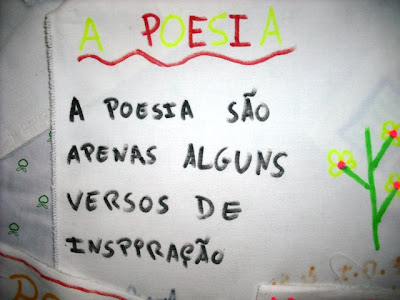 A POESIA
A POESIA SÃO
APENAS ALGUNS
VERSOS DE
INSPPRAÇÃO